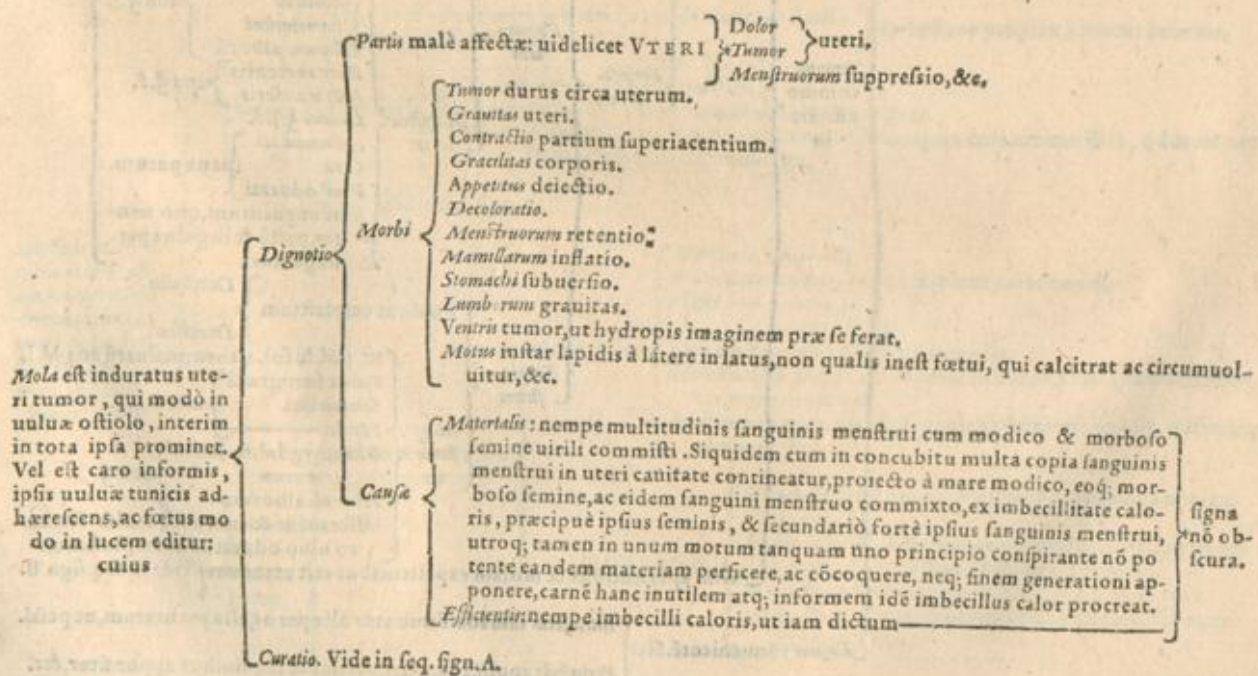 Mola est induratus ute-
ri tumor, qui modò in
uuluæ ostiolo, interim
in tota ipsa prominet.
Vel est caro informis,
ipsis uuluæ tunicis ad-
hærescens, ac fœtus mo
do in lucem editur:
cuius
Dignotio
Partis malè affectæ: uidelicet VTERI
Dolor
Tumor
uteri.
Menstruorum suppressio, &c.
Morbi
Tumor durus circa uterum.
Grauitas uteri.
Contractio partium superiacentium.
Gracilitas corporis.
Appetitus deiectio.
Decoloratio.
Menstruorum retentio:
Mamillarum inflatio.
Stomachi subuersio.
Lumborum grauitas.
Ventris tumor, ut hydropis imaginem præ se ferat.
Motus instar lapidis à látere in latus, non qualis inest fœtui, qui calcitrat ac circumuol-
uitur, &c.
Causæ
Materialis: nempe multitudinis sanguinis menstrui cum modico & morboso
semine uirili commisti. Siquidem cum in concubitu multa copia sanguinis
menstrui in uteri cauitate contineatur, profecto à mare modico, eoq; mor-
boso semine, ac eidem sanguini menstruo commixto, ex imbecillitate calo-
ris, præcipuè ipsius seminis, & secundariò fortè ipsius sanguinis menstrui,
utroq; tamen in unum motum tanquam uno principio conspirante nõ po
tente eandem materiam perficere, ac cõcoquere, neq; finem generationi ap-
ponere, carnẽ hanc inutilem atq; informem idẽ imbecillus calor procreat.
Efficientis: nempe imbecilli caloris, ut iam dictum
signa
nõ ob-
scura.
Curatio. Vide in seq. sign. A.